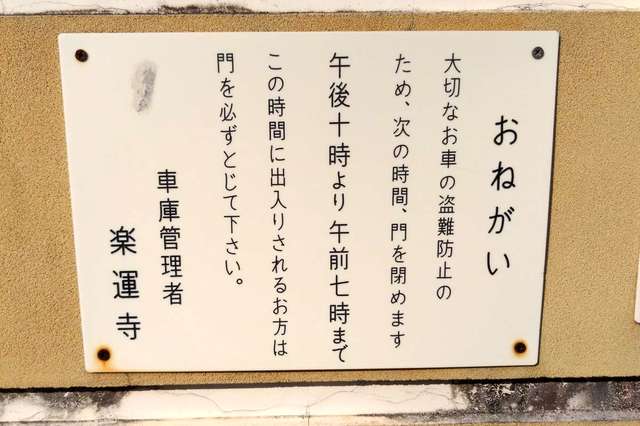 おねがい
大切なお車の盗難防止の
ため、次の時間、門を閉めます
午後十時より午前七時まで
この時間に出入りされるお方は
門を必ずとじて下さい。
車庫管理者
楽運寺